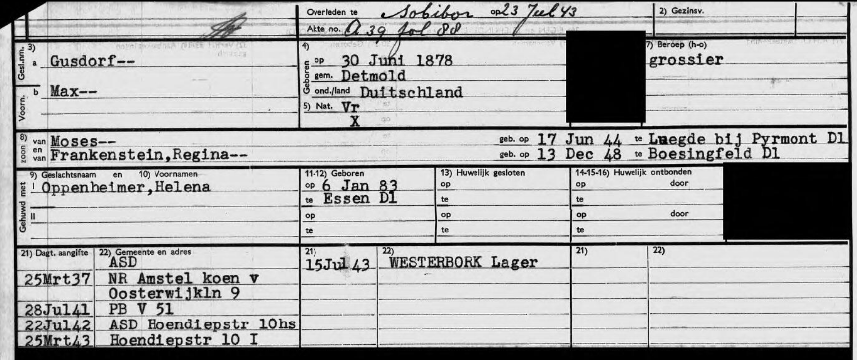 Overleden te Sobibor op 23 Jul 43
2) Gezinsv.
Akte no. A 39 fol 88
3) Gesl.nm. a Gusdorf--
Voorn. b Max--
4) Geboren op 30 Juni 1878
gem. Detmold
ond./land Duitschland
5) Nat. Vr
X
7) Beroep (h-o)
grossier
8) zoon van Moses-- geb. op 17 Jun 44 te Luegde bij Pyrmont Dl
en van Frankenstein,Regina-- geb. op 13 Dec 48 te Boesingfeld Dl
Gehuwd met
9) Geslachtsnaam en 10) Voornamen
I Oppenheimer,Helena
II
11-12) Geboren
op 6 Jan 83
te Essen Dl
op
te
13) Huwelijk gesloten
op
te
op
te
14-15-16) Huwelijk ontbonden
op door
te
op door
te
21) Dagt. aangifte 22) Gemeente en adres
ASD
25Mrt37 NR Amstel koen v
Oosterwijkln 9
28Jul41 PB V 51
22Jul42 ASD Hoendiepstr 10hs
25Mrt43 Hoendiepstr 10 I
21) 22)
15Jul43 WESTERBORK Lager
21) 22)